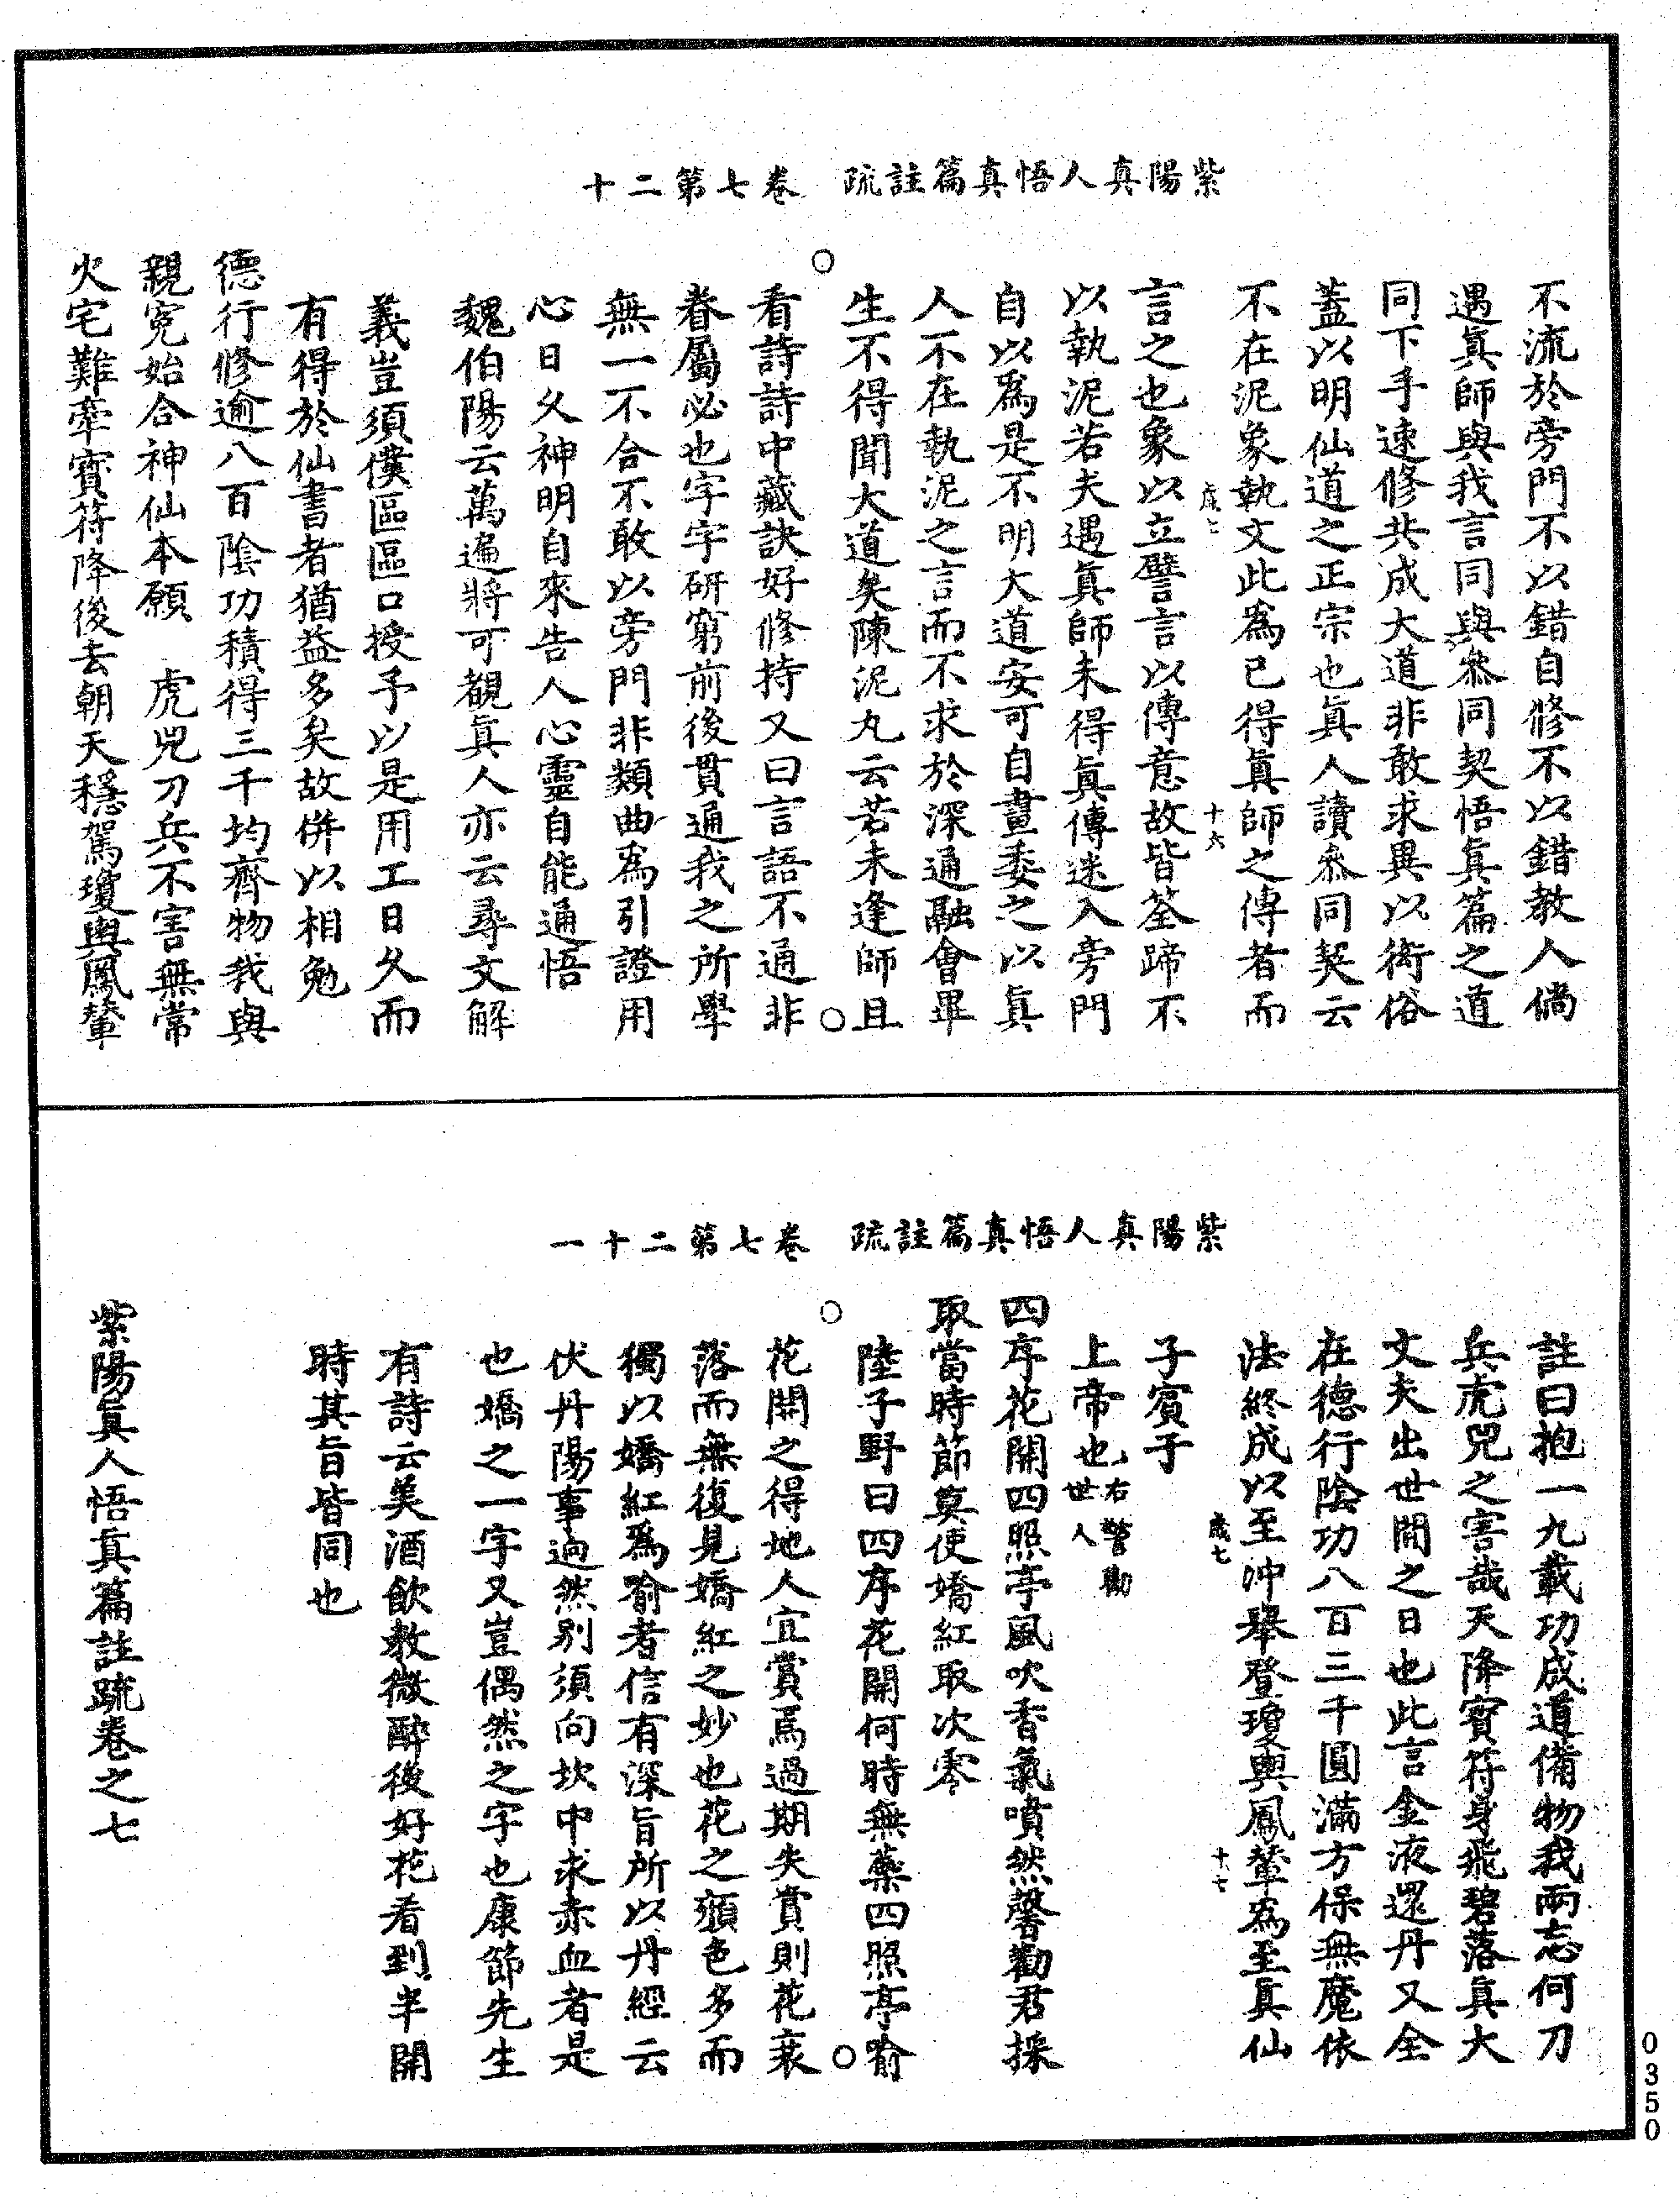 紫陽真人悟真篇註疏　卷七第二十
不流於旁門不以錯自修不以錯教人倘
遇眞師與我言同與叅同契悟眞篇之道
同下手速修共成大道非敢求異以衒俗
蓋以明仙道之正宗也眞人讀叅同契云
不在泥象執文此爲已得眞師之傳者而
歲七　十六
言之也象以立譬言以傳意故皆筌蹄不
以執泥若夫遇眞師未得眞傳迷入旁門
自以爲是不明大道安可自畫委之以眞
人不在執泥之言而不求於深通融會畢
生不得聞大道矣陳泥丸云若未逢師且
看詩詩中藏訣好修持又曰言語不通非
眷屬必也字字研窮前後貫通我之所學
無一不合不敢以旁門非類曲爲引證用
心日久神明自來告人心靈自能通悟
魏伯陽云萬遍將可覩眞人亦云尋文解
義豈須僕區區口授予以是用工日久而
有得於仙書者猶益多矣故併以相勉
德行修逾八百陰功積得三千均齊物我與
親寃始合神仙本願　虎兕刀兵不害無常
火宅難牽寳符降後去朝天穩駕瓊輿鳳輦
紫陽真人悟真篇註疏　卷七第二十一
註曰抱一九載功成道備物我兩忘何刀
兵虎兕之害哉天降寳符身飛碧落真大
丈夫出世間之日也此言金液還丹又全
在德行陰功八百三千圓滿方保無魔依
法終成以至沖舉登瓊輿鳳輦爲至真仙
歲七　十七
子賓于
上帝也右警勸世人
四序花開四照亭風吹香氣噴然馨勸君採
取當時節莫使嬌紅取次零
陸子野曰四序花開何時無藥四照亭喻
花開之得地人宜賞焉過期失賞則花衰
落而無復見嬌紅之妙也花之顔色多而
獨以嬌紅爲喻者信有深旨所以丹經云
伏丹陽事逈然別須向坎中求赤血者是
也嬌之一字又豈偶然之字也康節先生
有詩云美酒飲教微醉後好花看到半開
時其旨皆同也
紫陽眞人悟眞篇註疏卷之七
0350